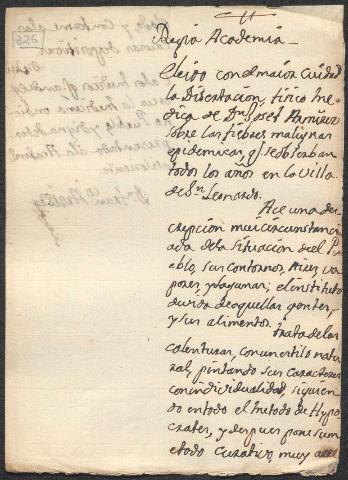 326
Regia Academia
Eleido con el maior cuidad
la Disertacion fisico me
dica de Dn. Josef Ramirez
sobre las fiebres malignas
epidemicas, qe. se obserban
todos los años en la Villa
de Sn. Leonardo.
Ace una des
cripcion mui circunstanci
ada de la situacion del P
eblo, sus contornos, Aires, va
pores, y lagunas; el instituto
de vida de aquellas gentes,
y sus alimentos. trata de las
calenturas, con un estilo natu
ral, pintando sus caracteres
con individualidad, siguien
do en todo el metodo de Hypo
crates, y despues pone su m
etodo curativo, muy